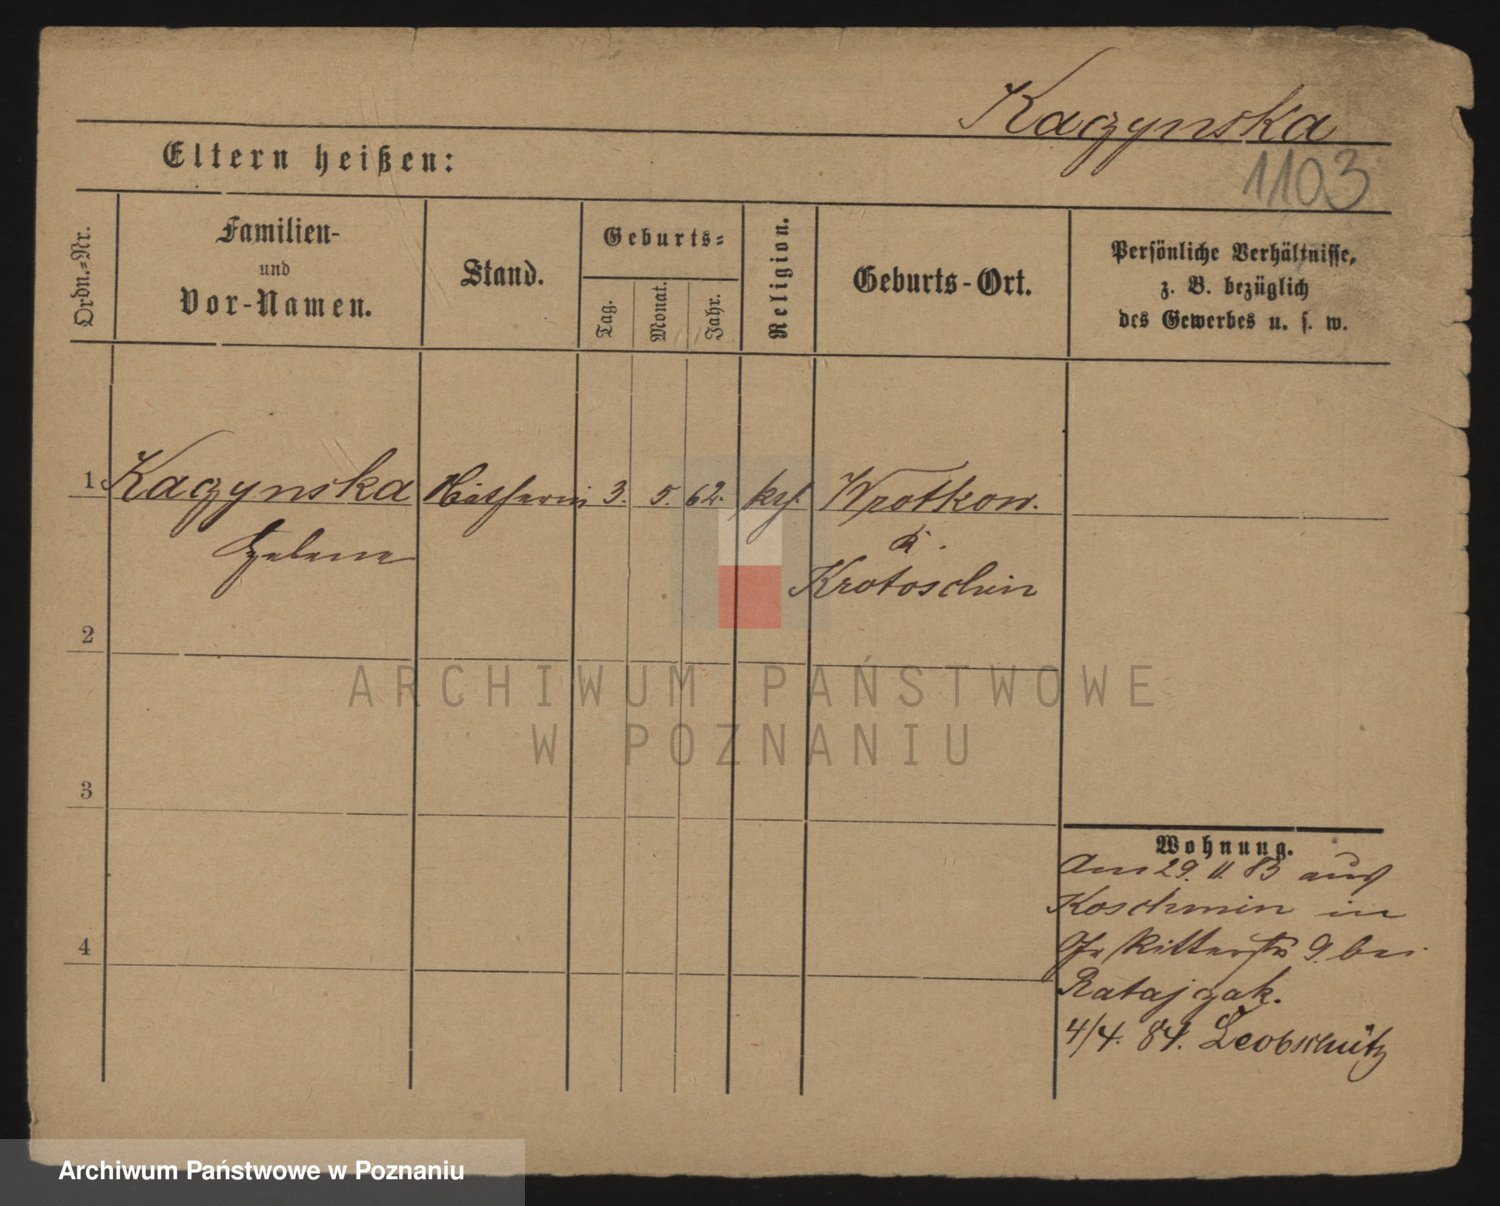 Kaczynska
1103
Eltern heißen:
Ordn.-Nr.
Familien-
und
Vor-Namen.
Stand.
Geburts-
Tag.
Monat.
Jahr.
Religion.
Geburts-Ort.
Persönliche Verhältnisse,
z. B. bezüglich
des Gewerbes u. s. w.
1 Kaczynska Nätherin 3. 5. 62. kth. Wrotkow.
Helene
K.
Krotoschin
2
ARCHIWUM PAŃSTWOWE
W POZNANIU
3
Wohnung.
Am 29. 11. 83 aus
Koschmin in
Gr Ritterstr 9. bei
4
Ratajczak.
4/4. 84. Leobschütz
Archiwum Państwowe w Poznaniu